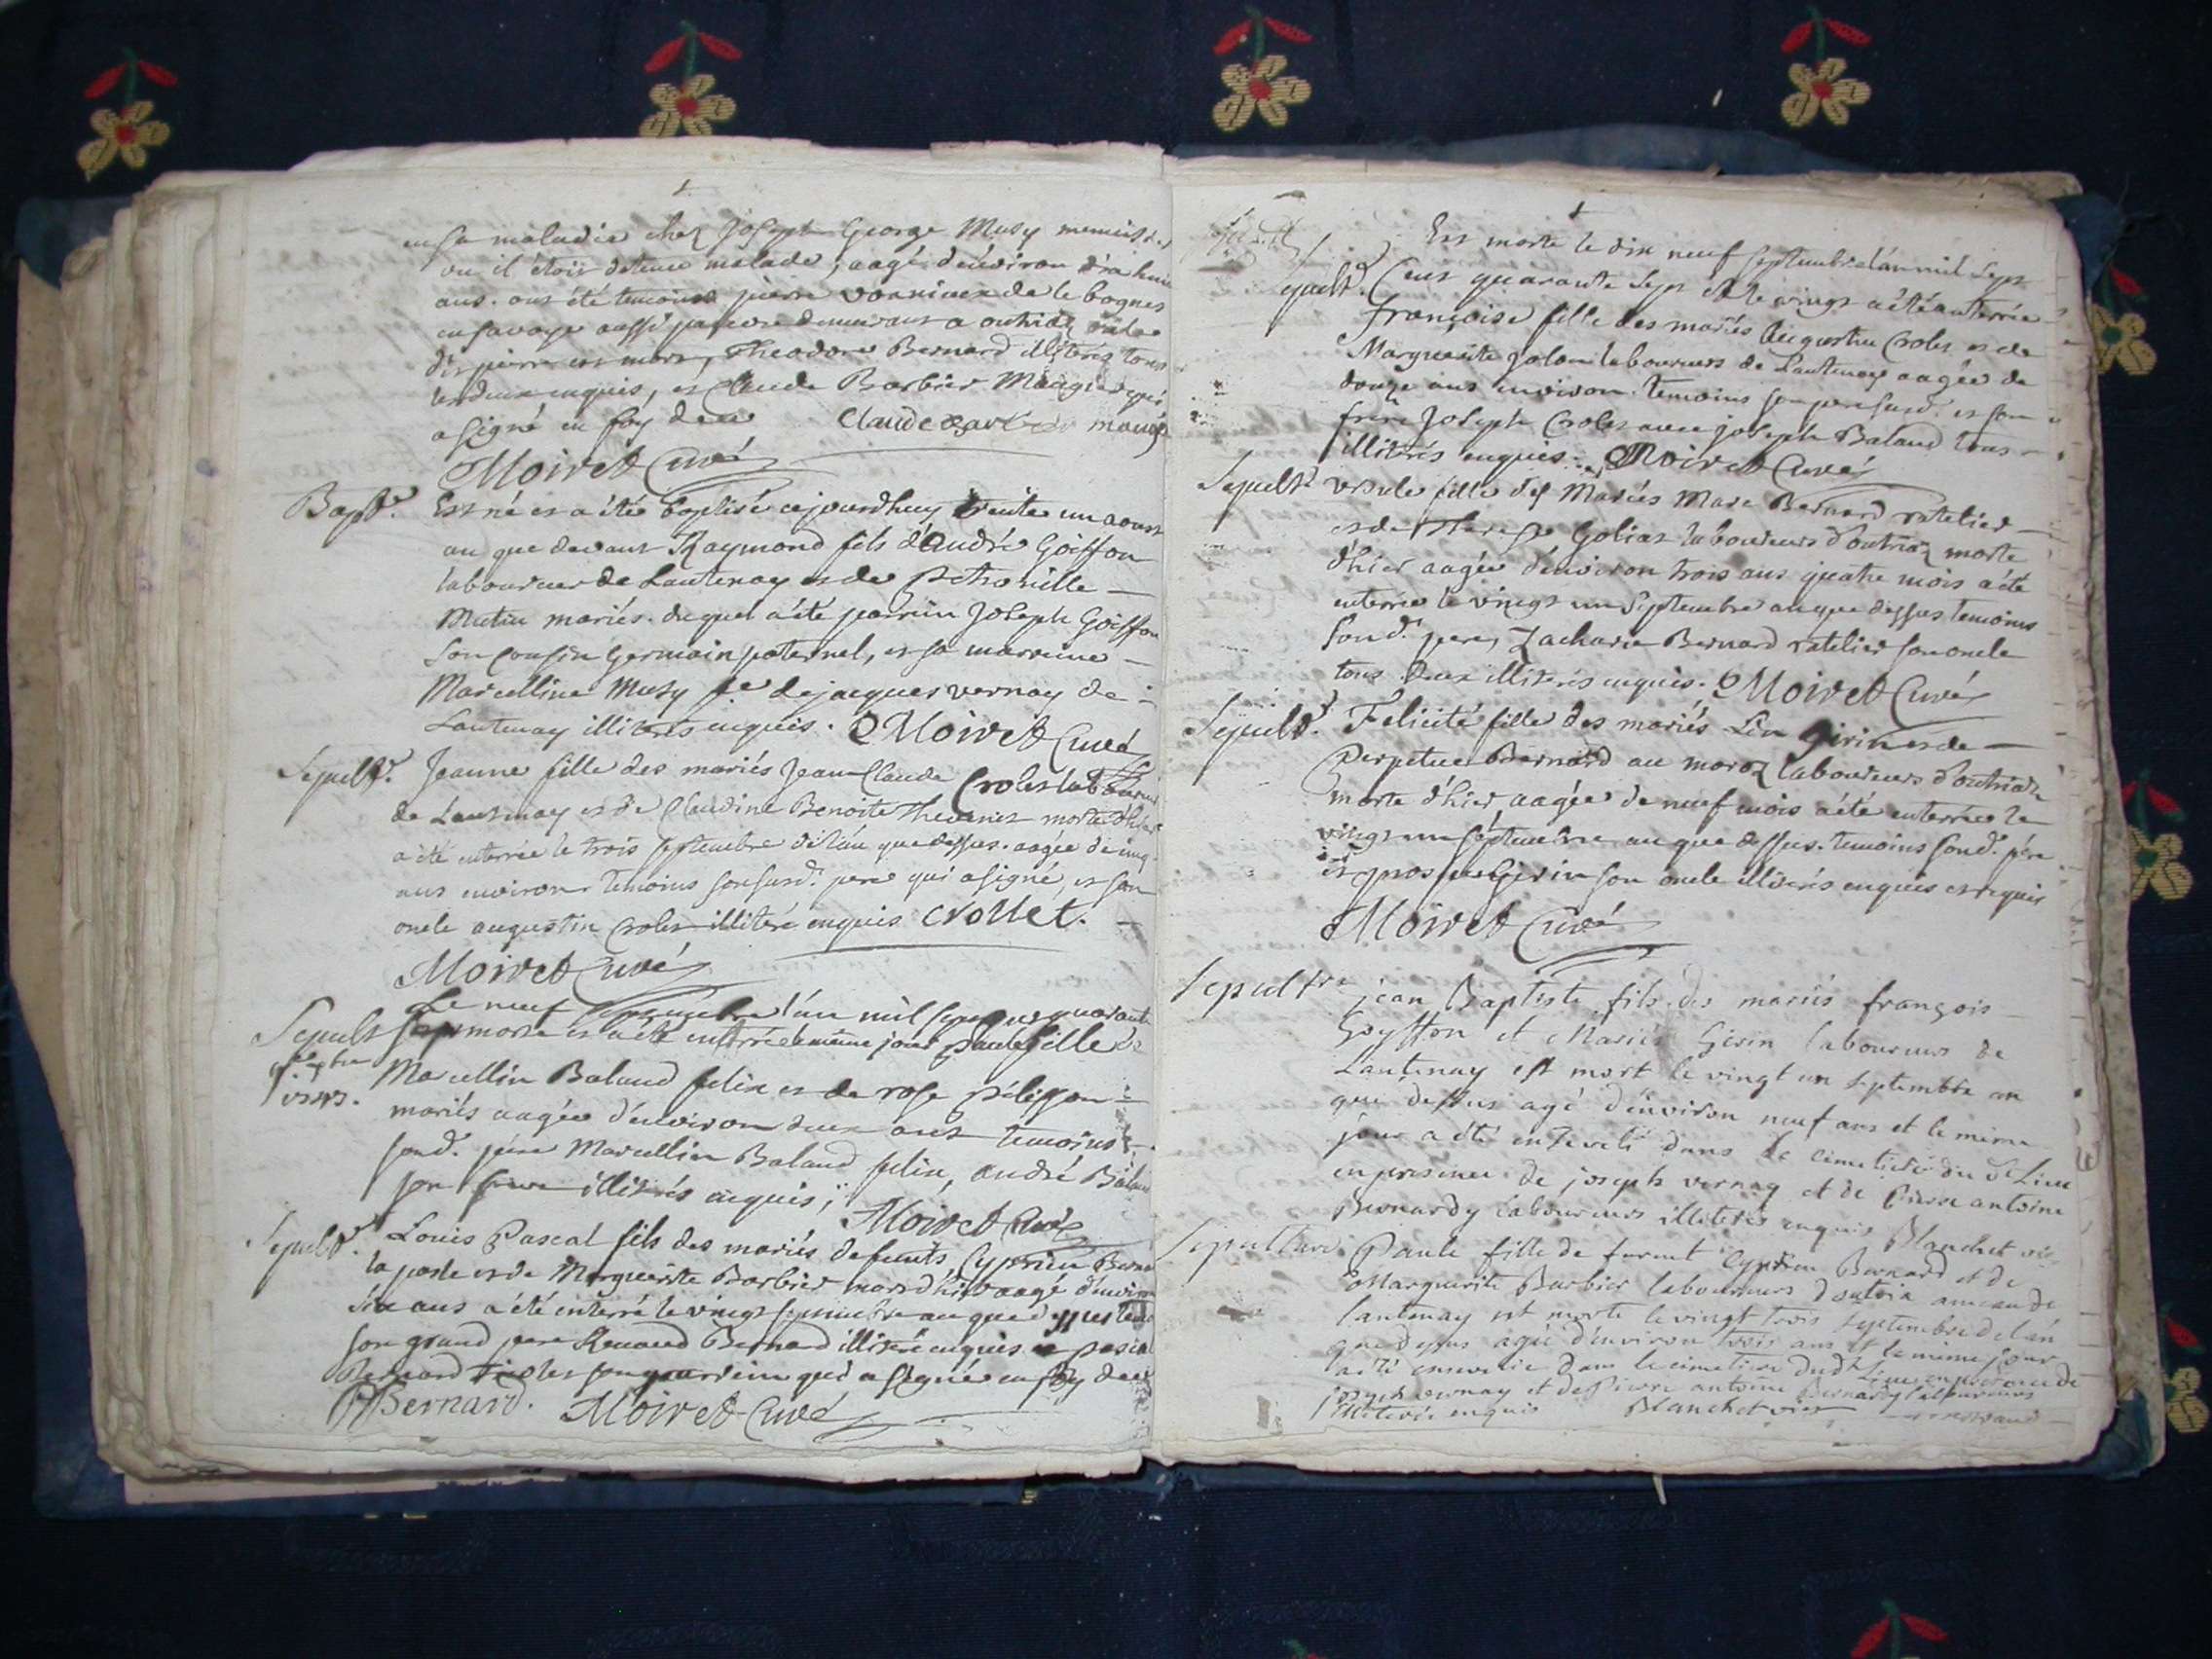 en sa maladie chez Joseph George Musy
ou il étoit detenu malade, aagé d'environ dix huit
ans. ont été temoins pierre de le bognes
en savoye aussi demeurant a outriaz
dit pierre est mort, Theodore Bernard illiterez tous
les deux enquis, et Claude Barbier qui
a signé en foy de ce Claude Barbier
Moiret Curé
Bapt.e Est né et a été baptisé cejourdhuy trente un aoust
an que devant Raymond fils d'André Goiffon
laboureur de Lantenay et de Petronille
Matin mariés. duquel a été parrain Joseph Goiffon
son cousin germain paternel, et sa marraine
Marcelline Musy f.e de jacques vernay de
Lantenay illiterés enquis. Moiret Curé
Sepult.e Jeanne fille des mariés Jean Claude Crolet laboureur
de Lantenay et de Claudine Benoite Thevenet morte d'hier
a été enterrée le trois septembre de l'an que dessus. aagée de cinq
ans environ temoins son susd. pere qui a signé, et son
oncle augustin Crolet illiteré enquis Crollet.
Moiret Curé
Le neuf septembre l'an mil sept cens quarante
Sepult sept morte et a été enterrée le même jour paule fille de
Marcellin Baland felix et de rose pelisson
mariés aagée d'environ deux ans temoins
sond. père Marcellin Baland felix, andré Baland
son frere illiterés enquis, Moiret Curé
Sepult.e Louis Pascal fils des mariés defunts Cyprien Bernard
la poste et de Marguerite Barbier mort d'hier aagé d'environ
six ans a été enterré le vingt septembre an que dessus
son grand pere Renaud Bernard illiteré enquis et
Bernard son qui a signé en foy de ce
Bernard. Moiret Curé
Est morte le dix neuf septembre l'an mil sept
Sepult.e Cens quarante sept et le vingt a été enterrée
françoise fille des mariés Augustin Crolet et de
Marguerite Jolan laboureurs de Lantenay aagée de
douze ans environ. temoins son pere susd. et son
frere Joseph Crolet avec joseph Baland tous
illiterés enquis. Moiret Curé
Sepult.e ursule fille des Mariés Marc Bernard ratelier
et de Therese Goliat laboureurs d'outriaz morte
d'hier aagée d'environ trois ans quatre mois a été
enterrée le vingt un septembre an que dessus temoins
sond. pere, Zacharie Bernard ratelier son oncle
tous deux illiterés enquis. Moiret Curé
Sepult.e Felicité fille des mariés Lin Girin et de
Perpetue Bernard au moroz laboureurs d'outriaz
morte d'hier aagée de neuf mois a été enterrée le
vingt un septembre an que dessus. temoins sond. père
et Girin son oncle illiterés enquis et requis
Moiret Curé
Sepultre jean Baptiste fils des mariés françois
Goyffon et Marie Girin laboureurs de
Lantenay est mort le vingt un septembre an
que dessus agé d'environ neuf ans et le même
jour a été enseveli dans le cimetiere du d. Lieu
en presence de joseph vernay et de Pierre antoine
Bernardy laboureurs illiterés enquis Blanchet vic
Sepulture Paule fille de furent Cyprien Bernard et de
Marguerite Barbier laboureurs d'outria ameau de
lantenay est morte le vingt trois septembre de l'an
que dessus agée d'environ trois ans et le même jour
a été ensevelie dans le cimetiere dud. Lieu en presence de
joseph vernay et de Pierre antoine Bernardy laboureurs
illiterés enquis Blanchet vic